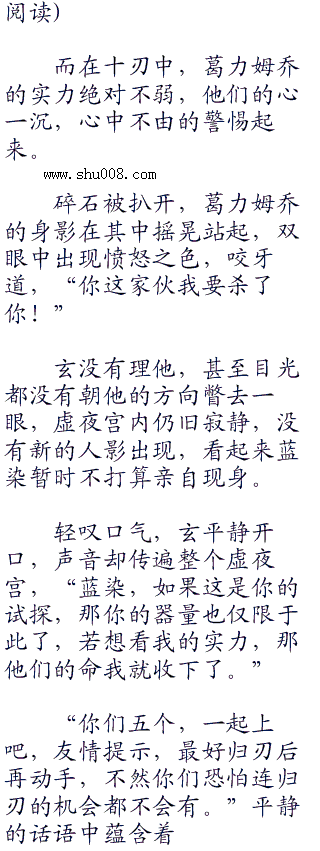 阅读)
而在十刃中，葛力姆乔
的实力绝对不弱，他们的心
一沉，心中不由的警惕起
来。
www.shu008.com
碎石被扒开，葛力姆乔
的身影在其中摇晃站起，双
眼中出现愤怒之色，咬牙
道，“你这家伙我要杀了
你！”
玄没有理他，甚至目光
都没有朝他的方向瞥去一
眼，虚夜宫内仍旧寂静，没
有新的人影出现，看起来蓝
染暂时不打算亲自现身。
轻叹口气，玄平静开
口，声音却传遍整个虚夜
宫，“蓝染，如果这是你的
试探，那你的器量也仅限于
此了，若想看我的实力，那
他们的命我就收下了。”
“你们五个，一起上
吧，友情提示，最好归刃后
再动手，不然你们恐怕连归
刃的机会都不会有。”平静
的话语中蕴含着